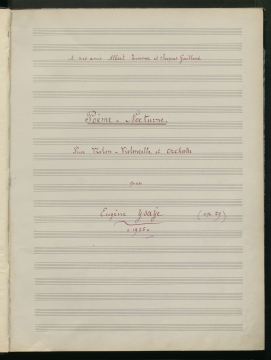 A mes amis Albert Zimmer et Jacques Gaillard
Poème - Nocturne.
Pour Violon - Violoncelle et Orchestre
par
Eugène Ysaÿe (op. 29)